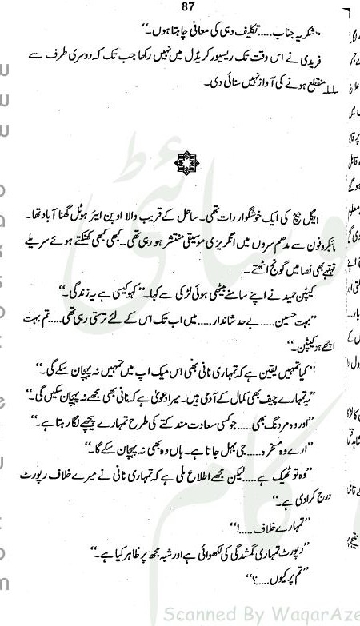 87
"شکریہ جناب......تکلیف دہی کی معافی چاہتا ہوں۔"
فریدی نے اس وقت تک ریسیور کریڈل میں نہیں رکھا جب تک کہ دوسری طرف سے
سلسلہ منقطع ہونے کی آواز نہیں سنائی دی۔
ایگل بیچ کی ایک خوشگوار رات تھی۔ ساحل کے قریب والا اوپن ایئر ہوٹل گھنا آباد تھا۔
مائیکروفون سے مدھم سروں میں انگریزی موسیقی منتشر ہو رہی تھی۔ کبھی کبھی کھنکتے ہوئے سریلے
قہقہے بھی فضا میں گونج اٹھتے۔
کیپٹن حمید نے اپنے سامنے بیٹھی ہوئی لڑکی سے کہا۔ "کہو کیسی ہے یہ زندگی۔"
"بہت حسین......بے حد شاندار......میں اب تک اس کے لئے ترستی رہی تھی......تم بہت
اچھے ہو کیپٹن۔"
"کیا تمہیں یقین ہے کہ تمہاری نانی بھی اس میک اپ میں تمہیں نہ پہچان سکے گی۔"
"یہ تمہارے چیف بھی کمال کے آدمی ہیں۔ میرا دعویٰ ہے کہ نانی بھی مجھے نہ پہچان سکیں گی۔"
"اور وہ مردنگ بھی......جو کسی سعادت مند کتے کی طرح تمہارے پیچھے لگا رہتا ہے۔"
"ارے وہ مسخرہ......جی بہل جاتا ہے۔ ہاں وہ بھی نہ پہچان سکے گا۔"
"وہ تو ٹھیک ہے......لیکن مجھے اطلاع ملی ہے کہ تمہاری نانی نے میرے خلاف رپورٹ
درج کرا دی ہے۔"
"تمہارے خلاف......!"
"رپورٹ تمہاری گمشدگی کی لکھوائی ہے اور شبہ مجھ پر ظاہر کیا ہے۔"
"تم پر کیوں......؟"
Scanned By WaqarAze